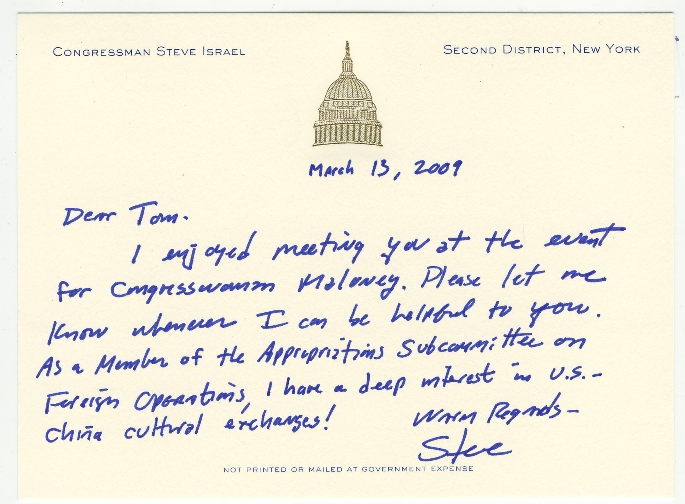 CONGRESSMAN STEVE ISRAEL
SECOND DISTRICT, NEW YORK
March 13, 2009
Dear Tom.
I enjoyed meeting you at the event
for Congresswoman Maloney. Please let me
know whenever I can be helpful to you.
As a Member of the Appropriations Subcommittee on
Foreign Operations, I have a deep interest in U.S.-
China cultural exchanges!
Warm Regards-
Steve
NOT PRINTED OR MAILED AT GOVERNMENT EXPENSE